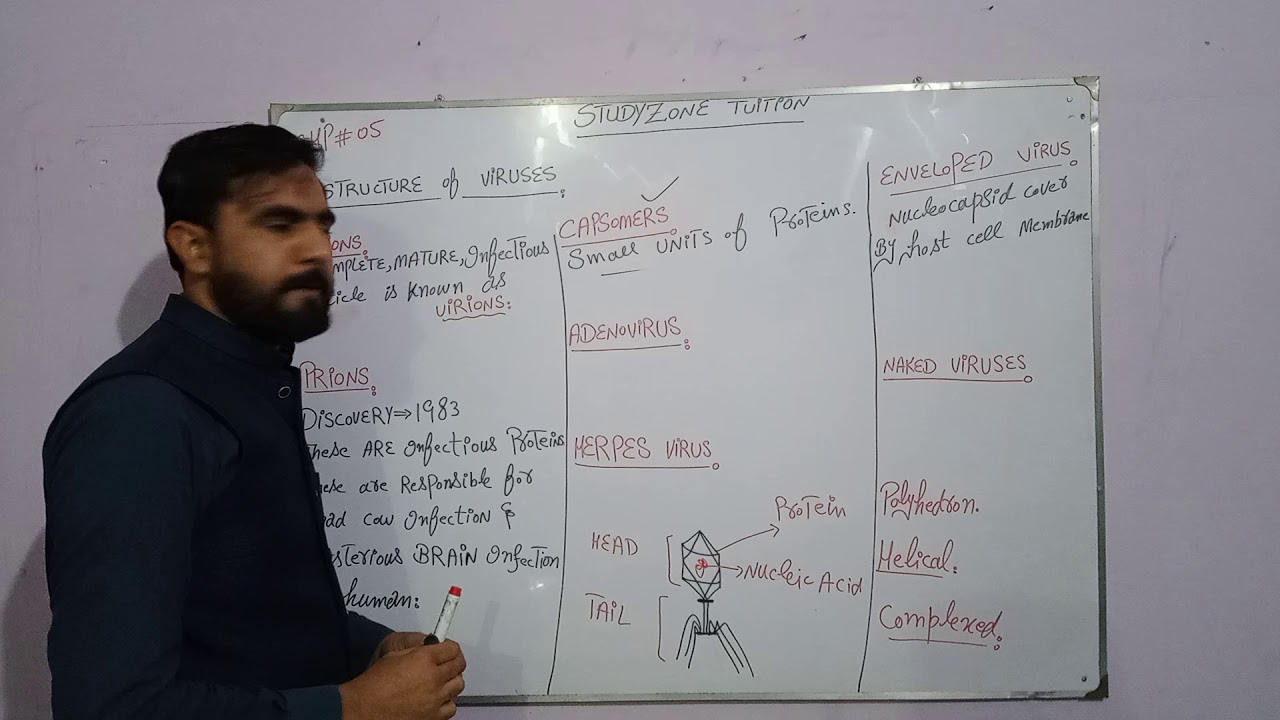 STUDYZONE TUITION
# 05
STRUCTURE of VIRUSES:
MATURE, Infectious
is known as
VIRIONS:
PRIONS:
DISCOVERY⇒1983
These ARE Infectious Proteins
are Responsible for
cow Infection &
BRAIN Infection
human:
CAPSOMERS:
Small UNITS of Proteins.
ADENOVIRUS:
HERPES VIRUS:
HEAD
TAIL
Protein
Nucleic Acid
ENVELOPED VIRUS:
Nucleocapsid cover
By host cell Membrane
NAKED VIRUSES:
Polyhedron.
Helical.
Complexed: